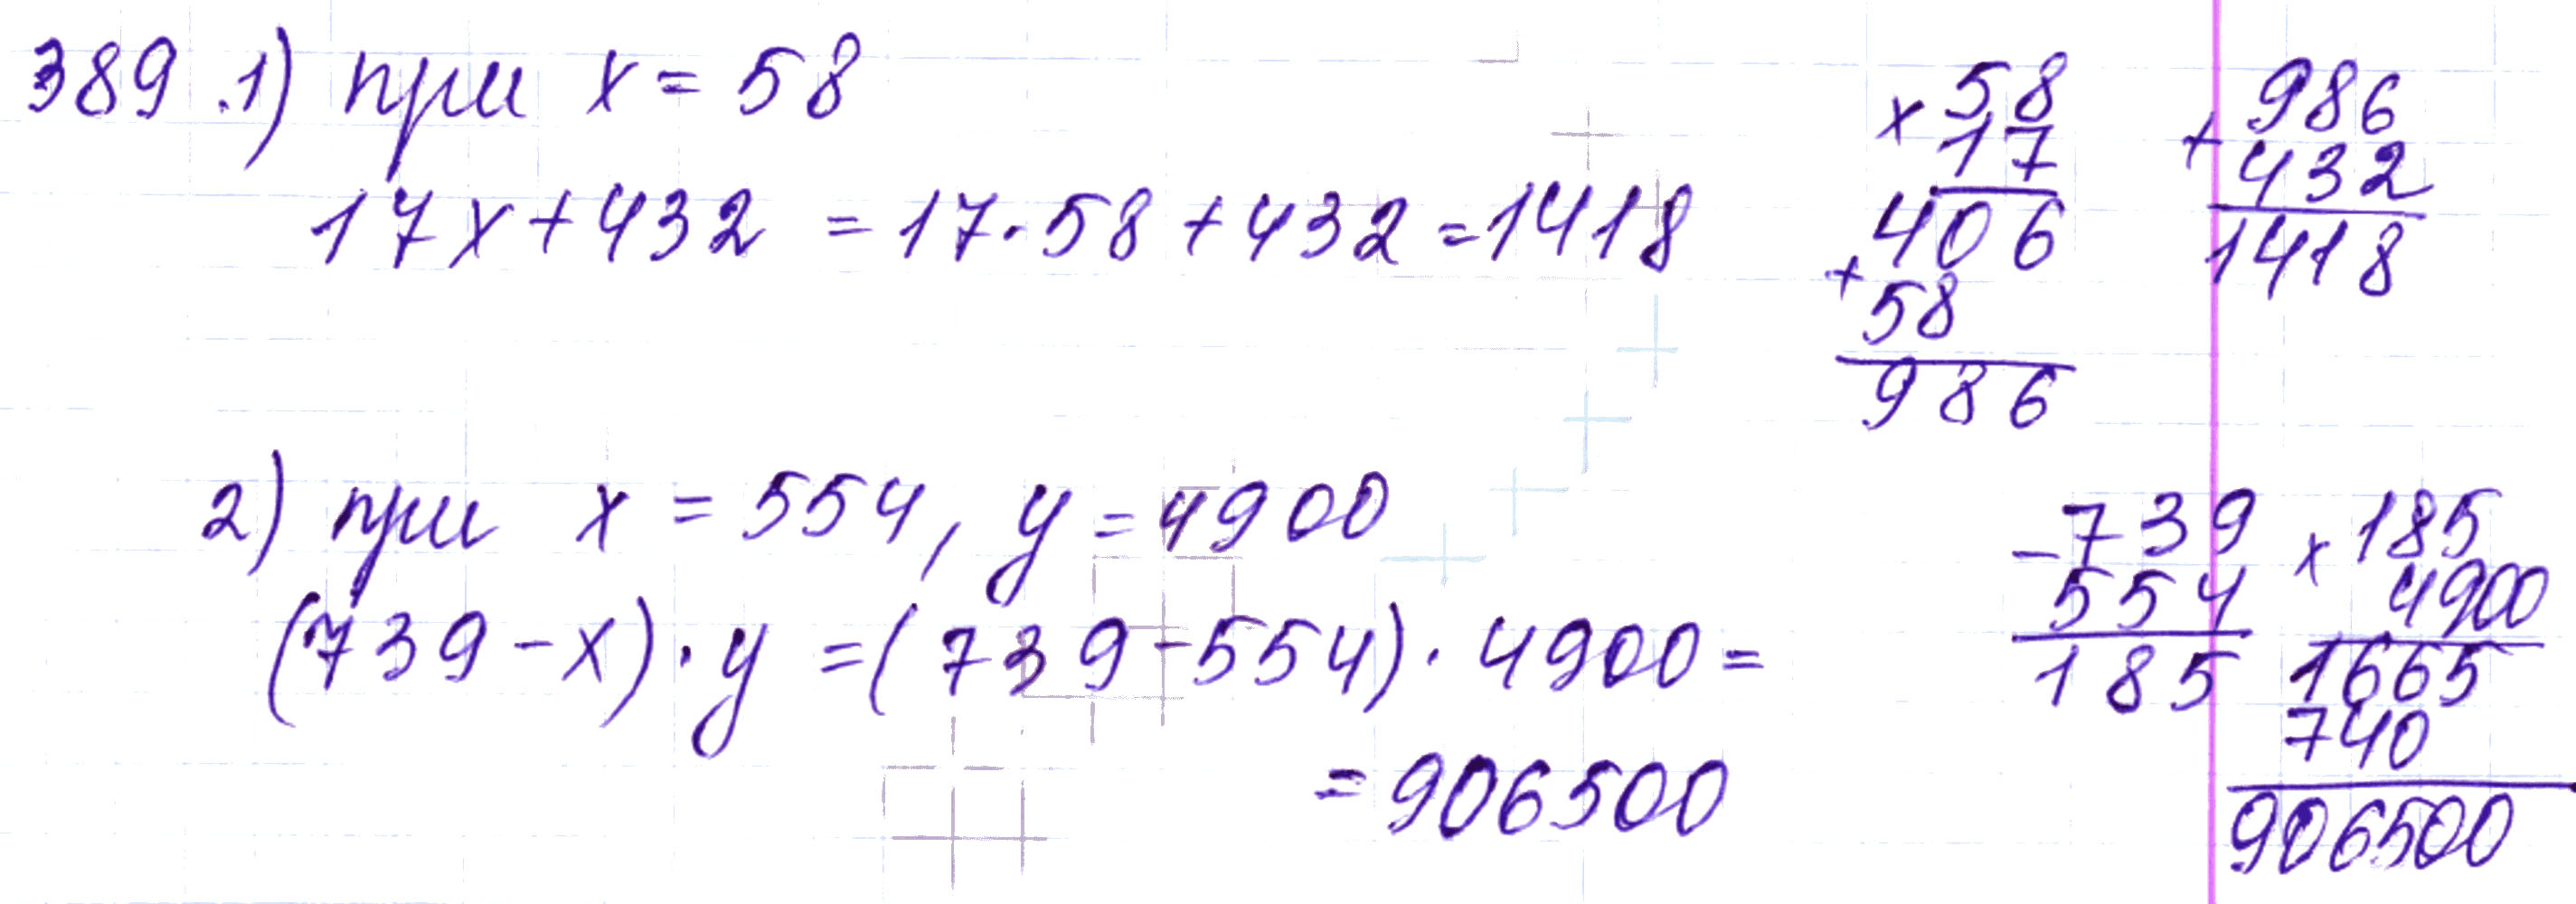 389.1) при x = 58
17x + 432 = 17·58 + 432 = 1418
× 58
17
406
+ 58
986
+ 986
432
1418
2) при x = 554, y = 4900
(739 - x)·y = (739 - 554)·4900 =
= 906500
- 739
554
185
× 185
4900
1665
740
906500